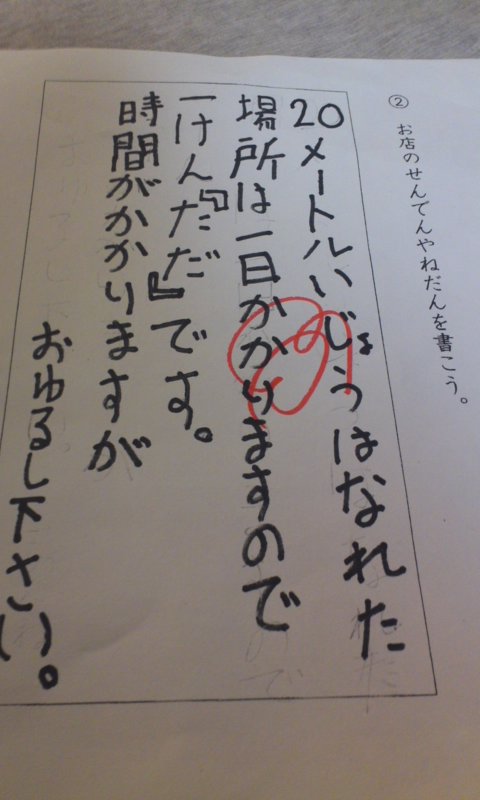 ② お店のせんでんやねだんを書こう。
20メートルいじょうはなれた
場所は一日かかりますので
一けん『ただ』です。
時間がかかりますが
おゆるし下さい。